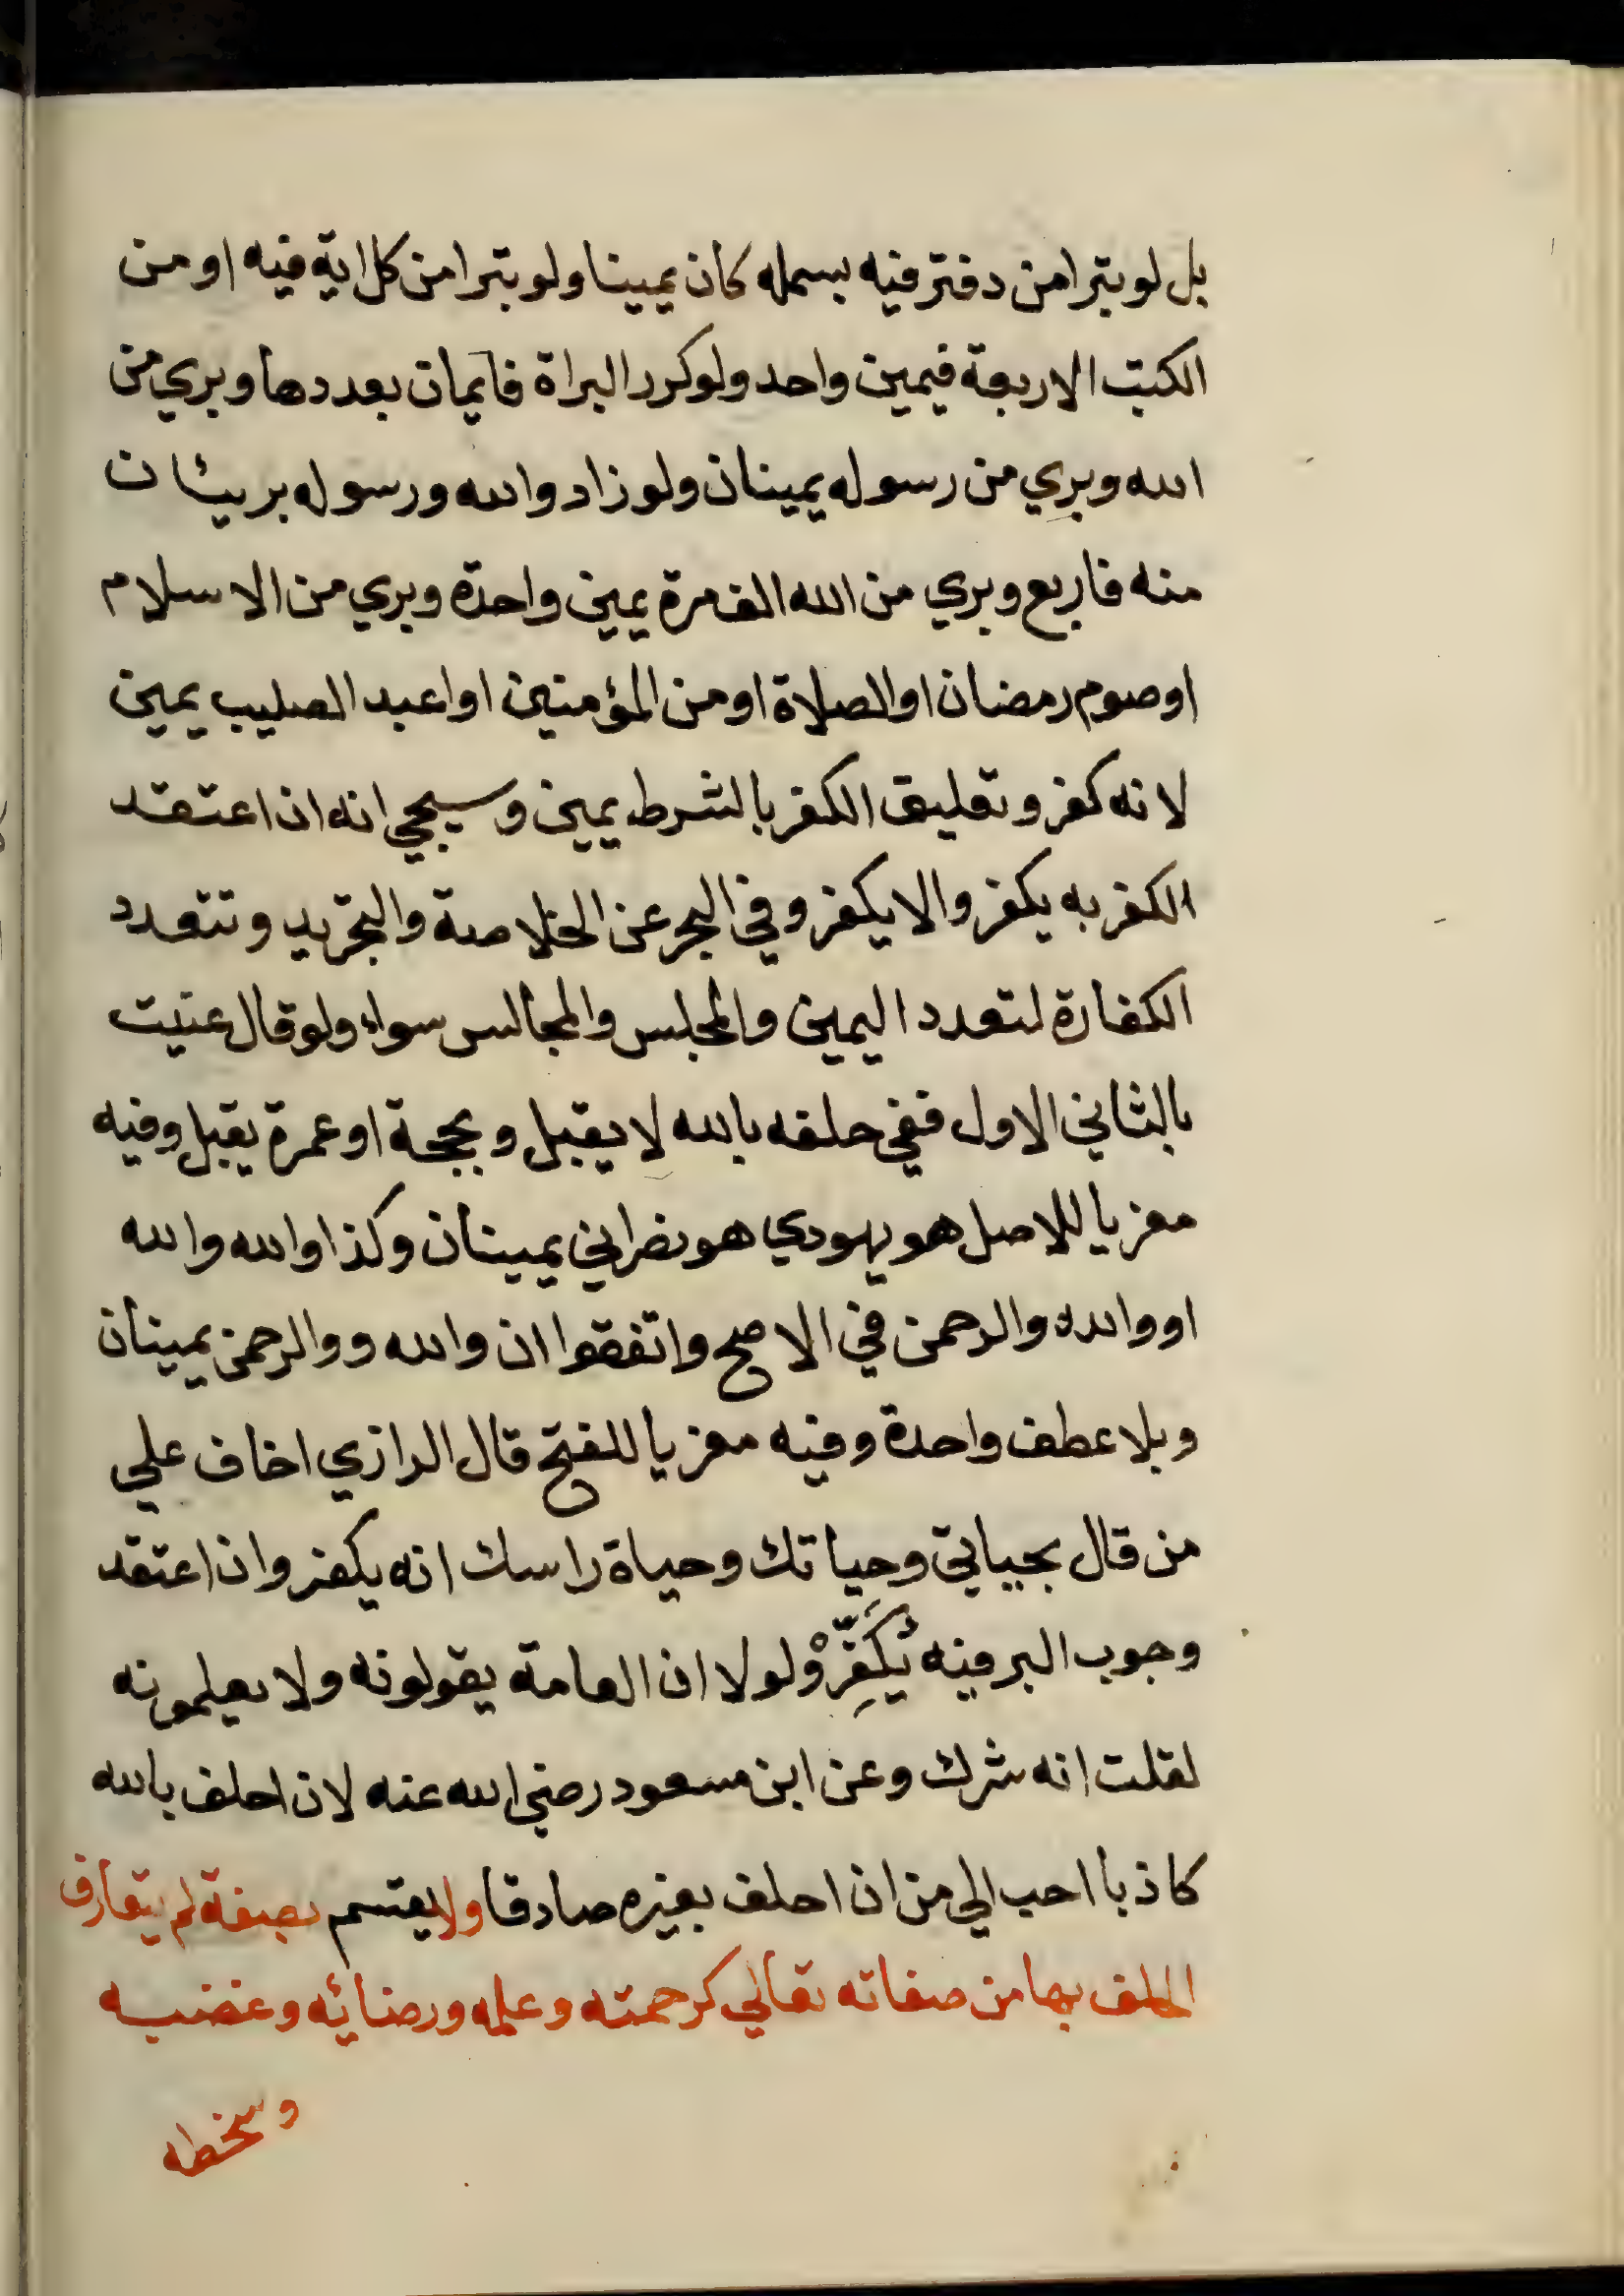 بل لو تبرا من دفتر فيه بسمله كان يمينا ولو تبرا من كل اية فيه او من
الكتب الاربعة فيمين واحد ولو كرر البراة فايمان بعددها وبري من
الله وبري من رسوله يمينان ولو زاد والله ورسوله بريئان
منه فاربع وبري من الله الف مرة يمين واحدة وبري من الاسلام
او صوم رمضان او الصلاة او من المؤمنين او اعبد الصليب يمين
لانه كفر وتعليق الكفر بالشرط يمين وسيجي انه ان اعتقد
الكفر به يكفر والا يكفر وفي البحر عن الخلاصة والتجريد وتتعدد
الكفارة لتعدد اليمين والمجلس والمجالس سواء ولو قال عنيت
بالثاني الاول ففي حلفه بالله لا يقبل وبحجة او عمرة يقبل وفيه
معزيا للاصل هو يهودي هو نصراني يمينان وكذا والله والله
او والله والرحمن في الاصح واتفقوا ان والله ووالرحمن يمينان
وبلا عطف واحدة وفيه معزيا للفتح قال الرازي اخاف علي
من قال بحياتي وحياتك وحياة راسك انه يكفر وان اعتقد
وجوب البر فيه يُكَفِّرْ ولولا ان العامة يقولونه ولا يعلمونه
لقلت انه شرك وعن ابن مسعود رضي الله عنه لان احلف بالله
كاذبا احب الي من ان احلف بغيره صادقا ولا يقسم بصفة لم يتعارف
الحلف بها من صفاته تعالي كرحمته وعلمه ورضائه وغضبه
وسخطه